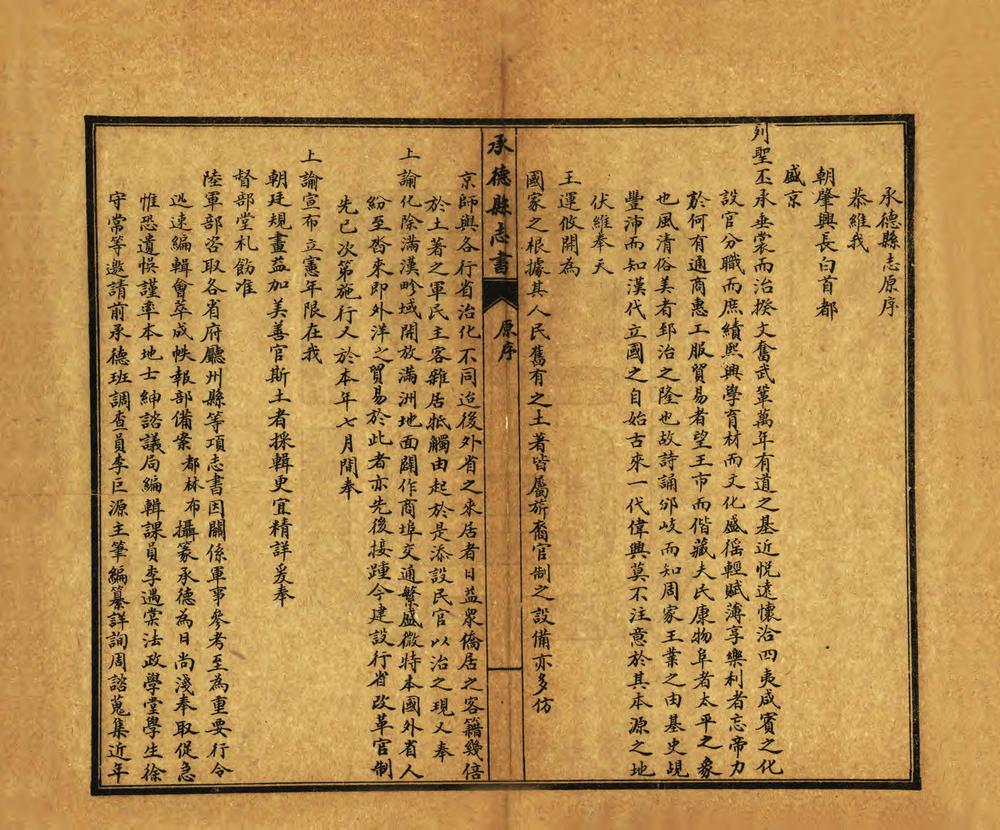 承德縣志原序
恭維我
朝肇興長白首都
盛京
列聖丕承垂裳而治揆文奮武鞏萬年有道之基近悅遠懷洽四夷咸賓之化
設官分職而庶績熙興學育材而文化盛徭輕賦薄享樂利者忘帝力
於何有通商惠工服貿易者望王市而偕藏夫民康物阜者太平之象
也風清俗美者郅治之隆也故詩誦邠岐而知周家王業之由基史覘
豐沛而知漢代立國之自始古來一代偉興莫不注意於其本源之地
伏維奉天
王運攸開為
國家之根據其人民舊有之土著皆屬旂裔官制之設備亦多仿
承德縣志書
原序
京師與各行省治化不同迨後外省之來居者日益眾僑居之客籍幾倍
於土著之軍民主客雜居牴觸由起於是添設民官以治之現又奉
上諭化除滿漢畛域開放滿洲地面闢作商埠交通繁盛微特本國外省人
紛至沓來即外洋之貿易於此者亦先後接踵今建設行省改革官制
先已次第施行又於本年七月間奉
上諭宣布立憲年限在我
朝廷規畫益加美善官斯土者採輯更宜精詳爰奉
督部堂札飭准
陸軍部咨取各省府廳州縣等項志書因關係軍事參考至為重要行令
迅速編輯會萃成帙報部備案都林布攝篆承德為日尚淺奉取促急
惟恐遺悞謹率本地士紳諮議局編輯課員李遇棠法政學堂學生徐
守常等邀請前承德班調查員李巨源主筆編纂詳詢周諮蒐集近年